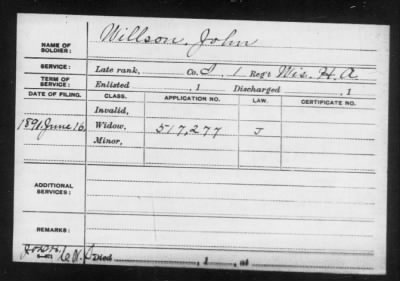 NAME OF SOLDIER: Willson, John
SERVICE: Late rank, Co. I, 1 Reg't Wis. H. A.
TERM OF SERVICE: Enlisted , 1 Discharged , 1
DATE OF FILING. CLASS. APPLICATION NO. LAW. CERTIFICATE NO.
Invalid,
1891 June 16, Widow, 517,277 J
Minor,
ADDITIONAL SERVICES:
REMARKS:
Died , 1 , at